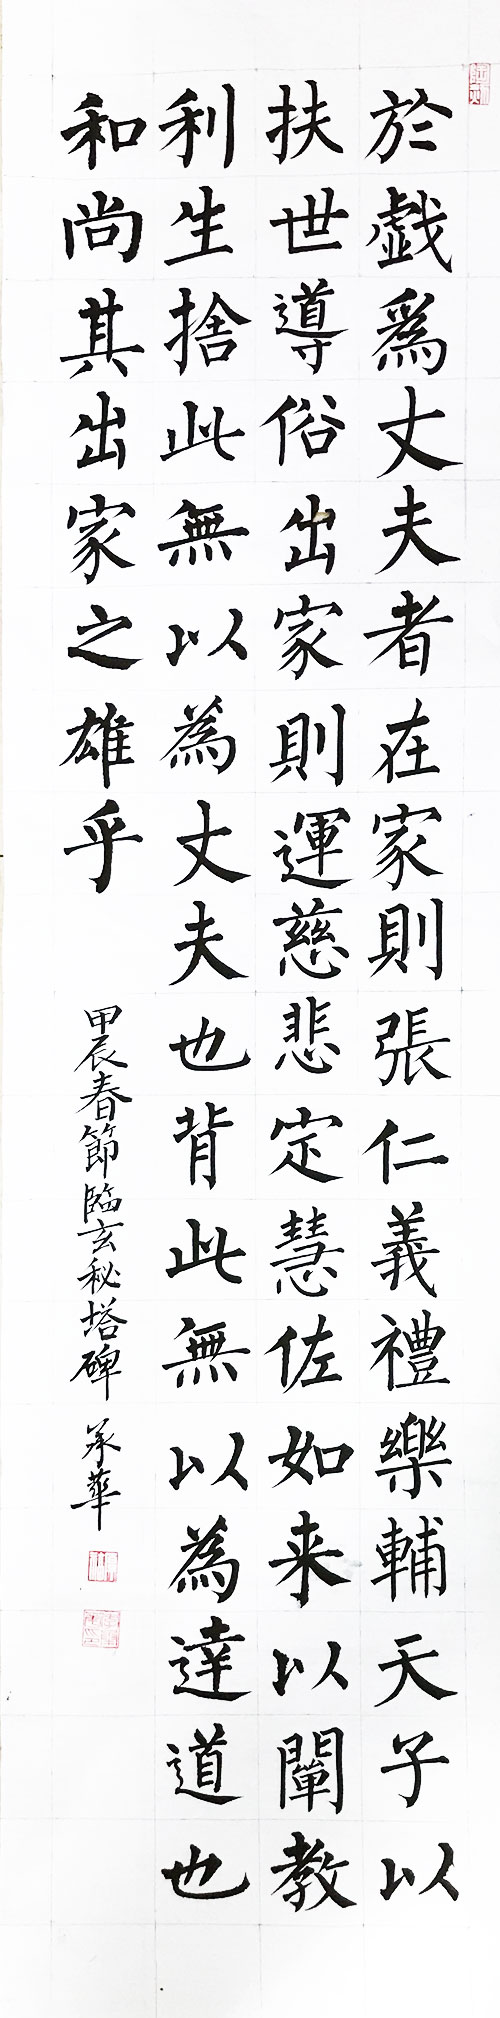 於戲爲丈夫者在家則張仁義禮樂輔天子以
扶世導俗出家則運慈悲定慧佐如来以闡教
利生捨此無以為丈夫也背此無以為達道也
和尚其出家之雄乎
甲辰春節臨玄秘塔碑 承華